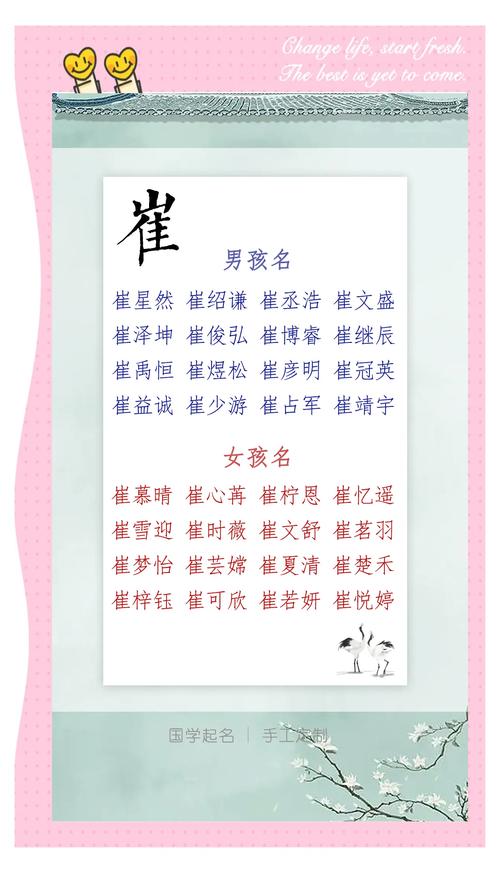 Change life, start fresh.
The best is yet to come.
崔
男孩名
崔星然 崔绍谦 崔丞浩 崔文盛
崔泽坤 崔俊弘 崔博睿 崔继辰
崔禹恒 崔煜松 崔彦明 崔冠英
崔益诚 崔少游 崔占军 崔靖宇
女孩名
崔慕晴 崔心苒 崔柠恩 崔忆遥
崔雪迎 崔时薇 崔文舒 崔茗羽
崔梦怡 崔芸嫦 崔夏清 崔楚禾
崔梓钰 崔可欣 崔若妍 崔悦婷
国学起名 | 手工定制